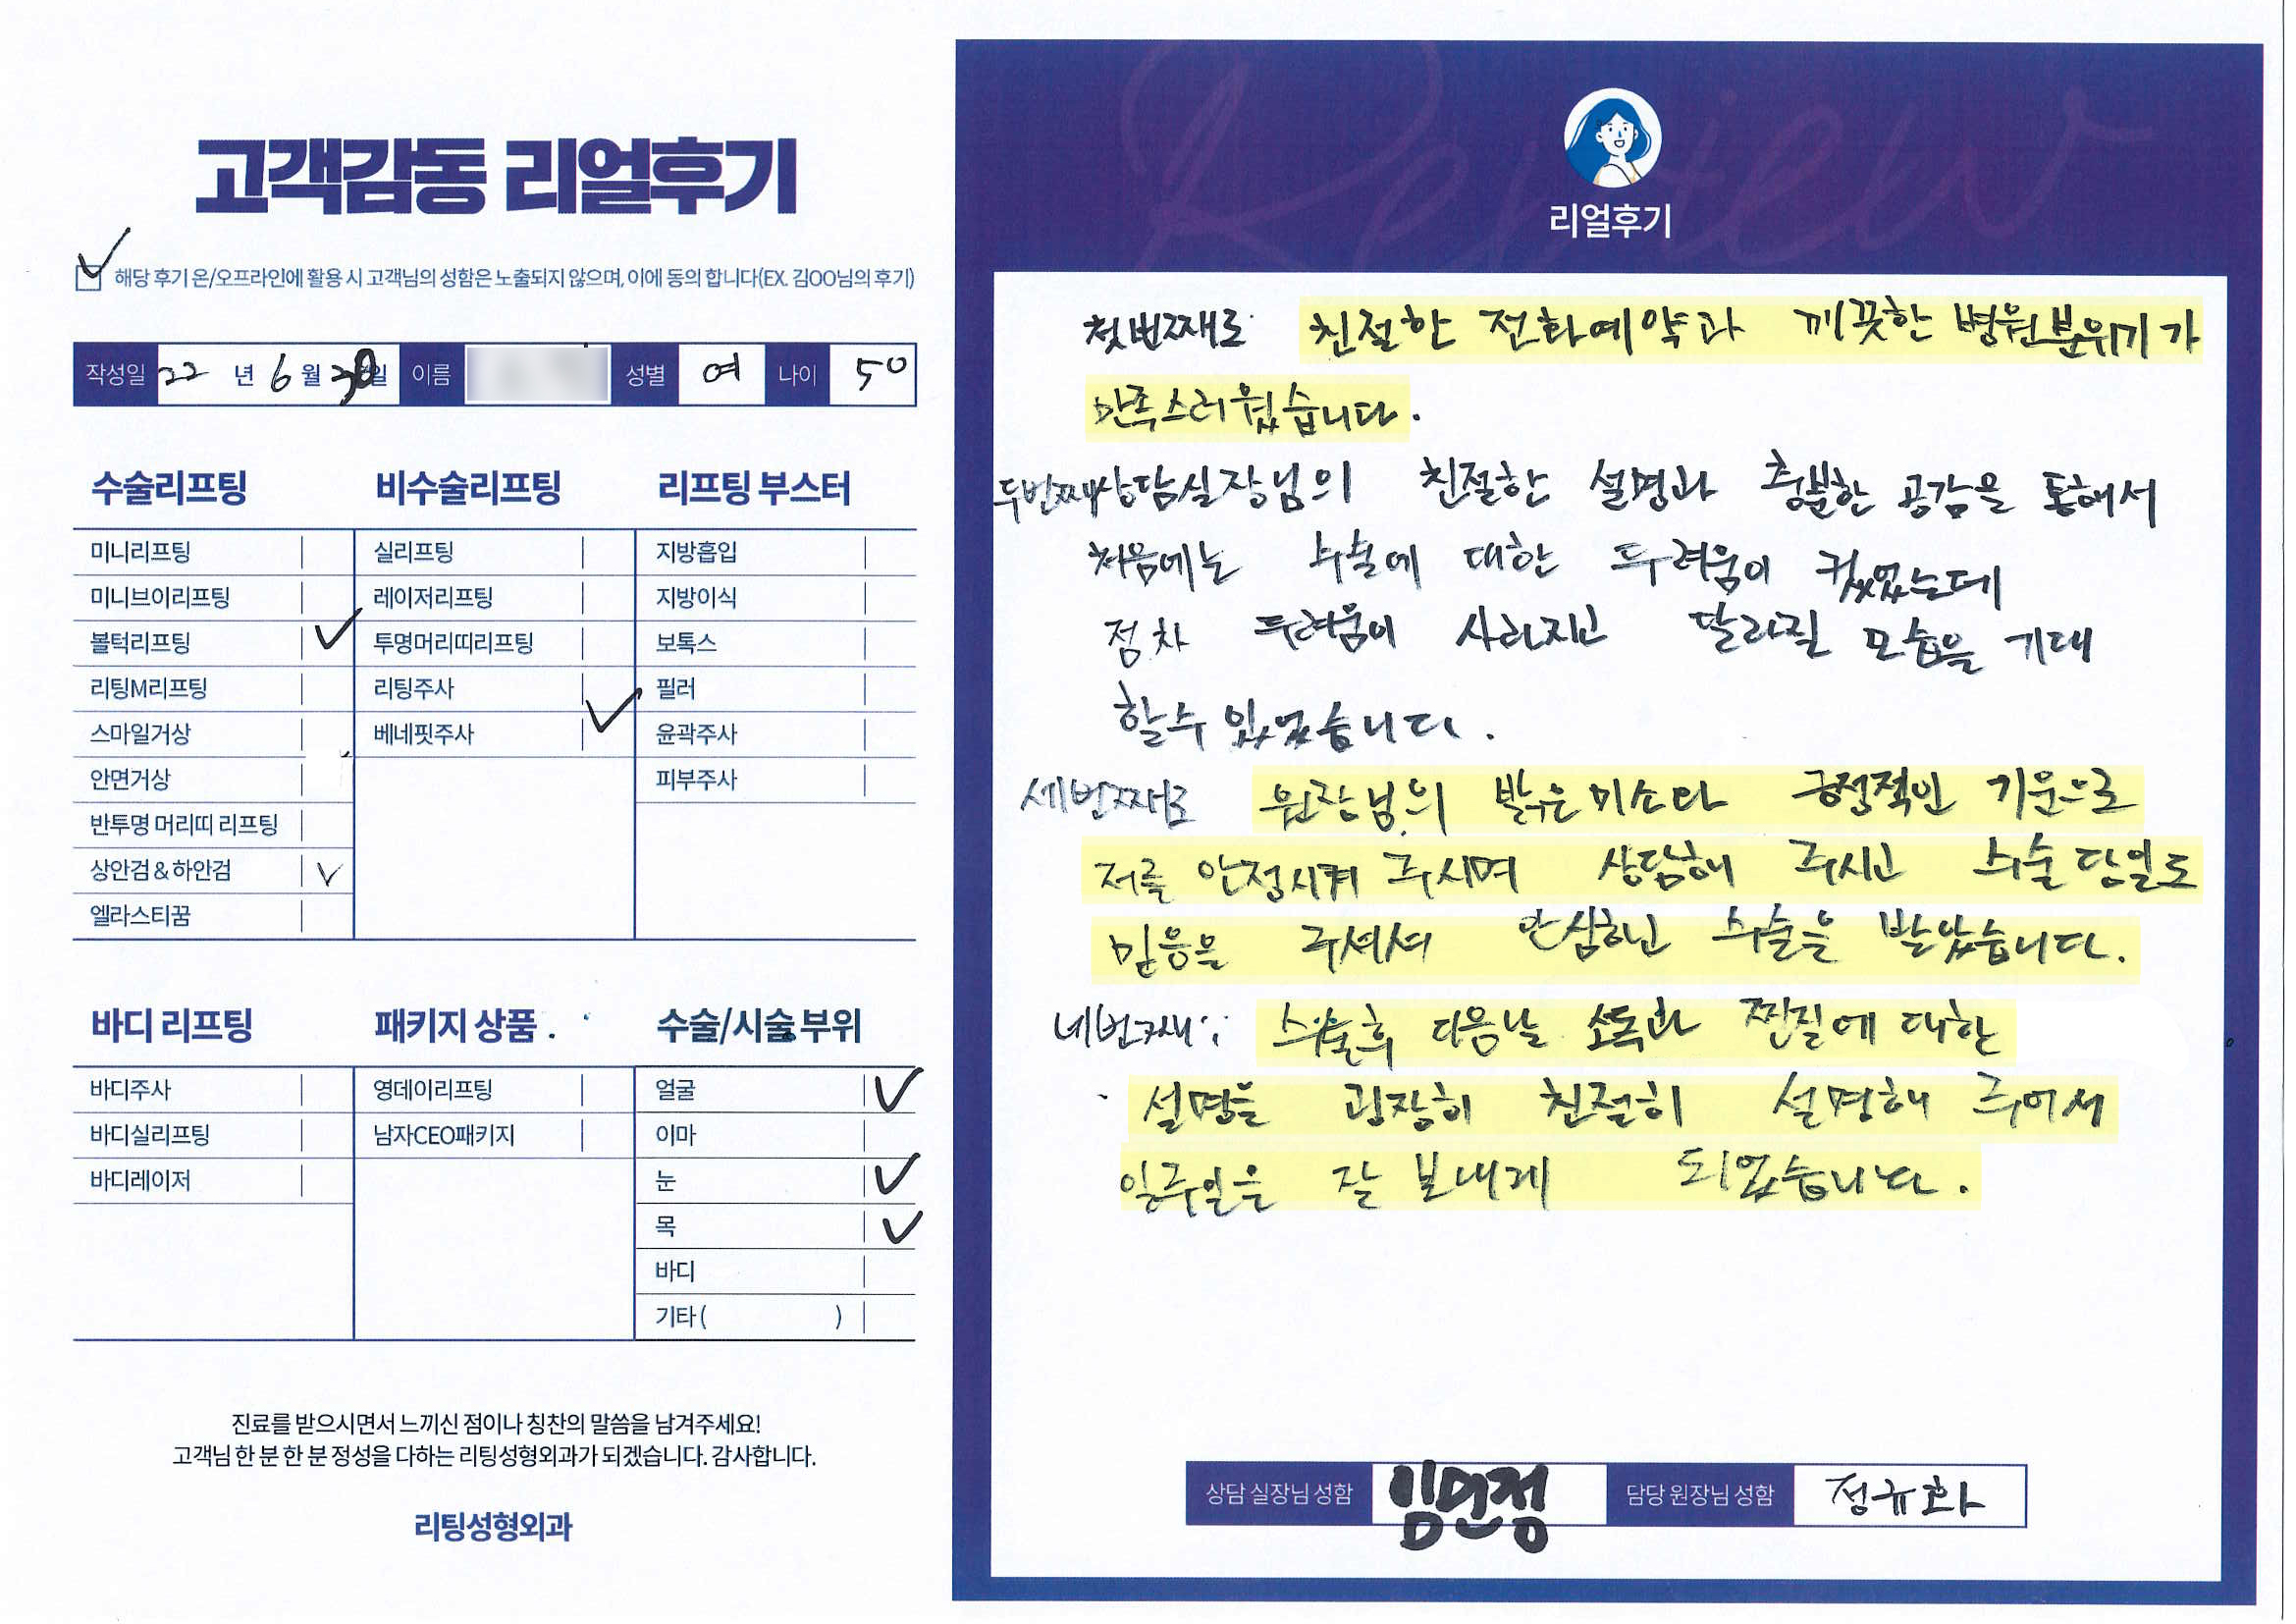 고객감동 리얼후기
해당 후기 온/오프라인에 활용 시 고객님의 성함은 노출되지 않으며, 이에 동의 합니다(EX. 김OO님의 후기)
작성일 22 년 6 월 30 일 이름 성별 여 나이 50
수술리프팅
미니리프팅
미니브이리프팅
볼턱리프팅
리팅M리프팅
스마일거상
안면거상
반투명 머리띠 리프팅
상안검 & 하안검
엘라스티꿈
비수술리프팅
실리프팅
레이저리프팅
투명머리띠리프팅
리팅주사
베네핏주사
리프팅 부스터
지방흡입
지방이식
보톡스
필러
윤곽주사
피부주사
바디 리프팅
바디주사
바디실리프팅
바디레이저
패키지 상품
영데이리프팅
남자CEO패키지
수술/시술 부위
얼굴
이마
눈
목
바디
기타 ( )
진료를 받으시면서 느끼신 점이나 칭찬의 말씀을 남겨주세요!
고객님 한 분 한 분 정성을 다하는 리팅성형외과가 되겠습니다. 감사합니다.
리팅성형외과
Review
리얼후기
첫번째로 친절한 전화예약과 깨끗한 병원분위기가
만족스러웠습니다.
두번째 상담실장님의 친절한 설명과 충분한 공감을 통해서
처음에는 수술에 대한 두려움이 컸었는데
점차 두려움이 사라지고 달라질 모습을 기대
할수 있었습니다.
세번째로 원장님의 밝은 미소다 긍정적인 기운으로
저를 안정시켜 주시며 상담해 주시고 수술 당일도
믿음을 주셔서 안심하고 수술을 받았습니다.
네번째: 수술후 다음날 소독과 찜질에 대한
설명을 굉장히 친절히 설명해 주어서
일주일은 잘 보내게 되었습니다.
상담 실장님 성함 임민정 담당 원장님 성함 정규화